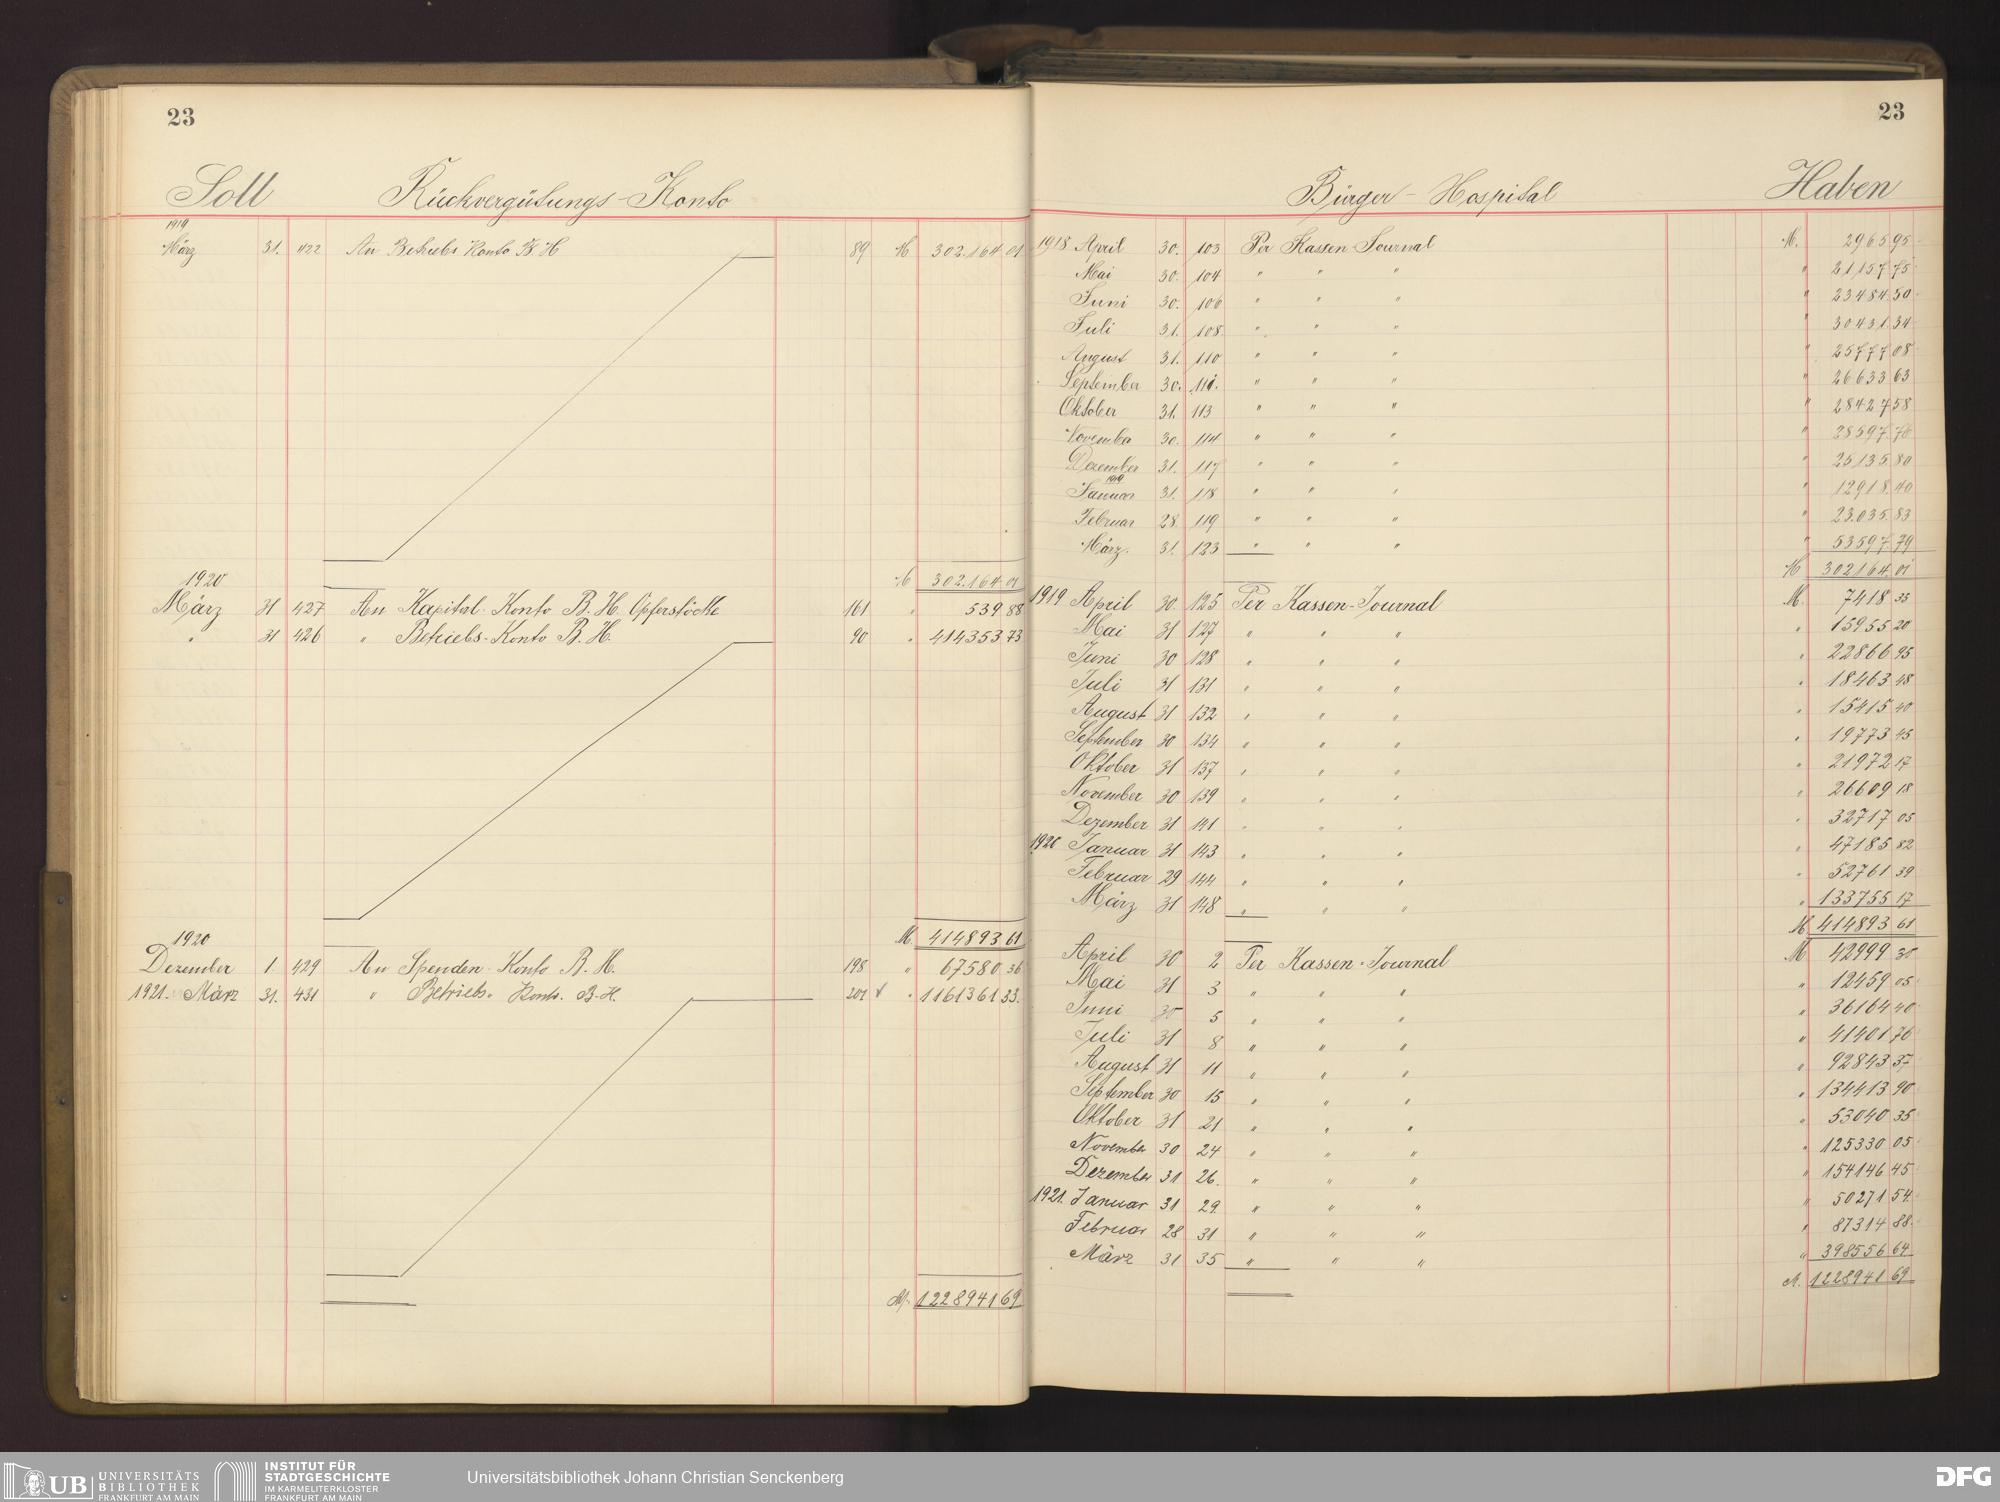 23
Soll Rückvergütungs-Konto
1919
März 31. 422 An Betriebs Konto B. H 89 M 302.164 01
M 302.164 01
1920
März 31 427 An Kapital-Konto B. H. Opferstöcke 161 " 539 88
" 31 426 " Betriebs-Konto B. H. 90 " 414353 73
M. 414893 61
1920
Dezember 1. 429 An Spenden-Konto B. H. 198 " 67580 36
1921. März 31. 431 " Betriebs-Konto. B-H. 201 " 1161361 33.
M. 1228941 69
23
Bürger-Hospital Haben
1918 April 30. 103 Per Kassen-Journal M. 2965 95
Mai 30. 104 " " " " 21157 75
Juni 30. 106 " " " " 23484 50
Juli 31. 108 " " " " 30431 34
August 31. 110 " " " " 25777 08
September 30. 111. " " " " 26633 63
Oktober 31. 113 " " " " 28427 58
November 30. 114 " " " " 28597 76
Dezember 31. 117 " " " " 25135 80
1919
Januar 31. 118 " " " " 12918 40
Februar 28. 119 " " " " 23.035 83
März. 31. 123 " " " " 53597 79
M 302164 01
1919 April 30. 125 Per Kassen-Journal M. 7418 35
Mai 31 127 " " " " 15955 20
Juni 30 128 " " " " 22866 95
Juli 31 131 " " " " 18463 48
August 31 132 " " " " 15415 40
September 30 134 " " " " 19773 45
Oktober 31 137 " " " " 21972 17
November 30 139 " " " " 26609 18
Dezember 31 141 " " " " 32717 05
1920 Januar 31 143 " " " " 47185 82
Februar 29 144 " " " " 52761 39
März 31 148 " " " " 133755 17
M 414893 61
April 30 2 Per Kassen-Journal M 42999 30
Mai 31 3 " " " " 12459 05
Juni 30 5 " " " " 36164 40
Juli 31 8 " " " " 41401 76
August 31 11 " " " " 92843 37
September 30 15 " " " " 134413 90
Oktober 31 21 " " " " 53040 35
November 30 24 " " " " 125330 05
Dezember 31 26. " " " " 154146 45
1921. Januar 31 29. " " " " 50271 54
Februar 28 31 " " " " 87314 88
März 31 35 " " " " 398556 64
M. 1228941 69
UB UNIVERSITÄTS
BIBLIOTHEK
FRANKFURT AM MAIN
INSTITUT FÜR
STADTGESCHICHTE
IM KARMELITERKLOSTER
FRANKFURT AM MAIN
Universitätsbibliothek Johann Christian Senckenberg
DFG